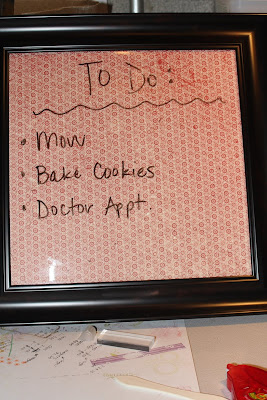 To Do:
• Mow
• Bake Cookies
• Doctor Appt.